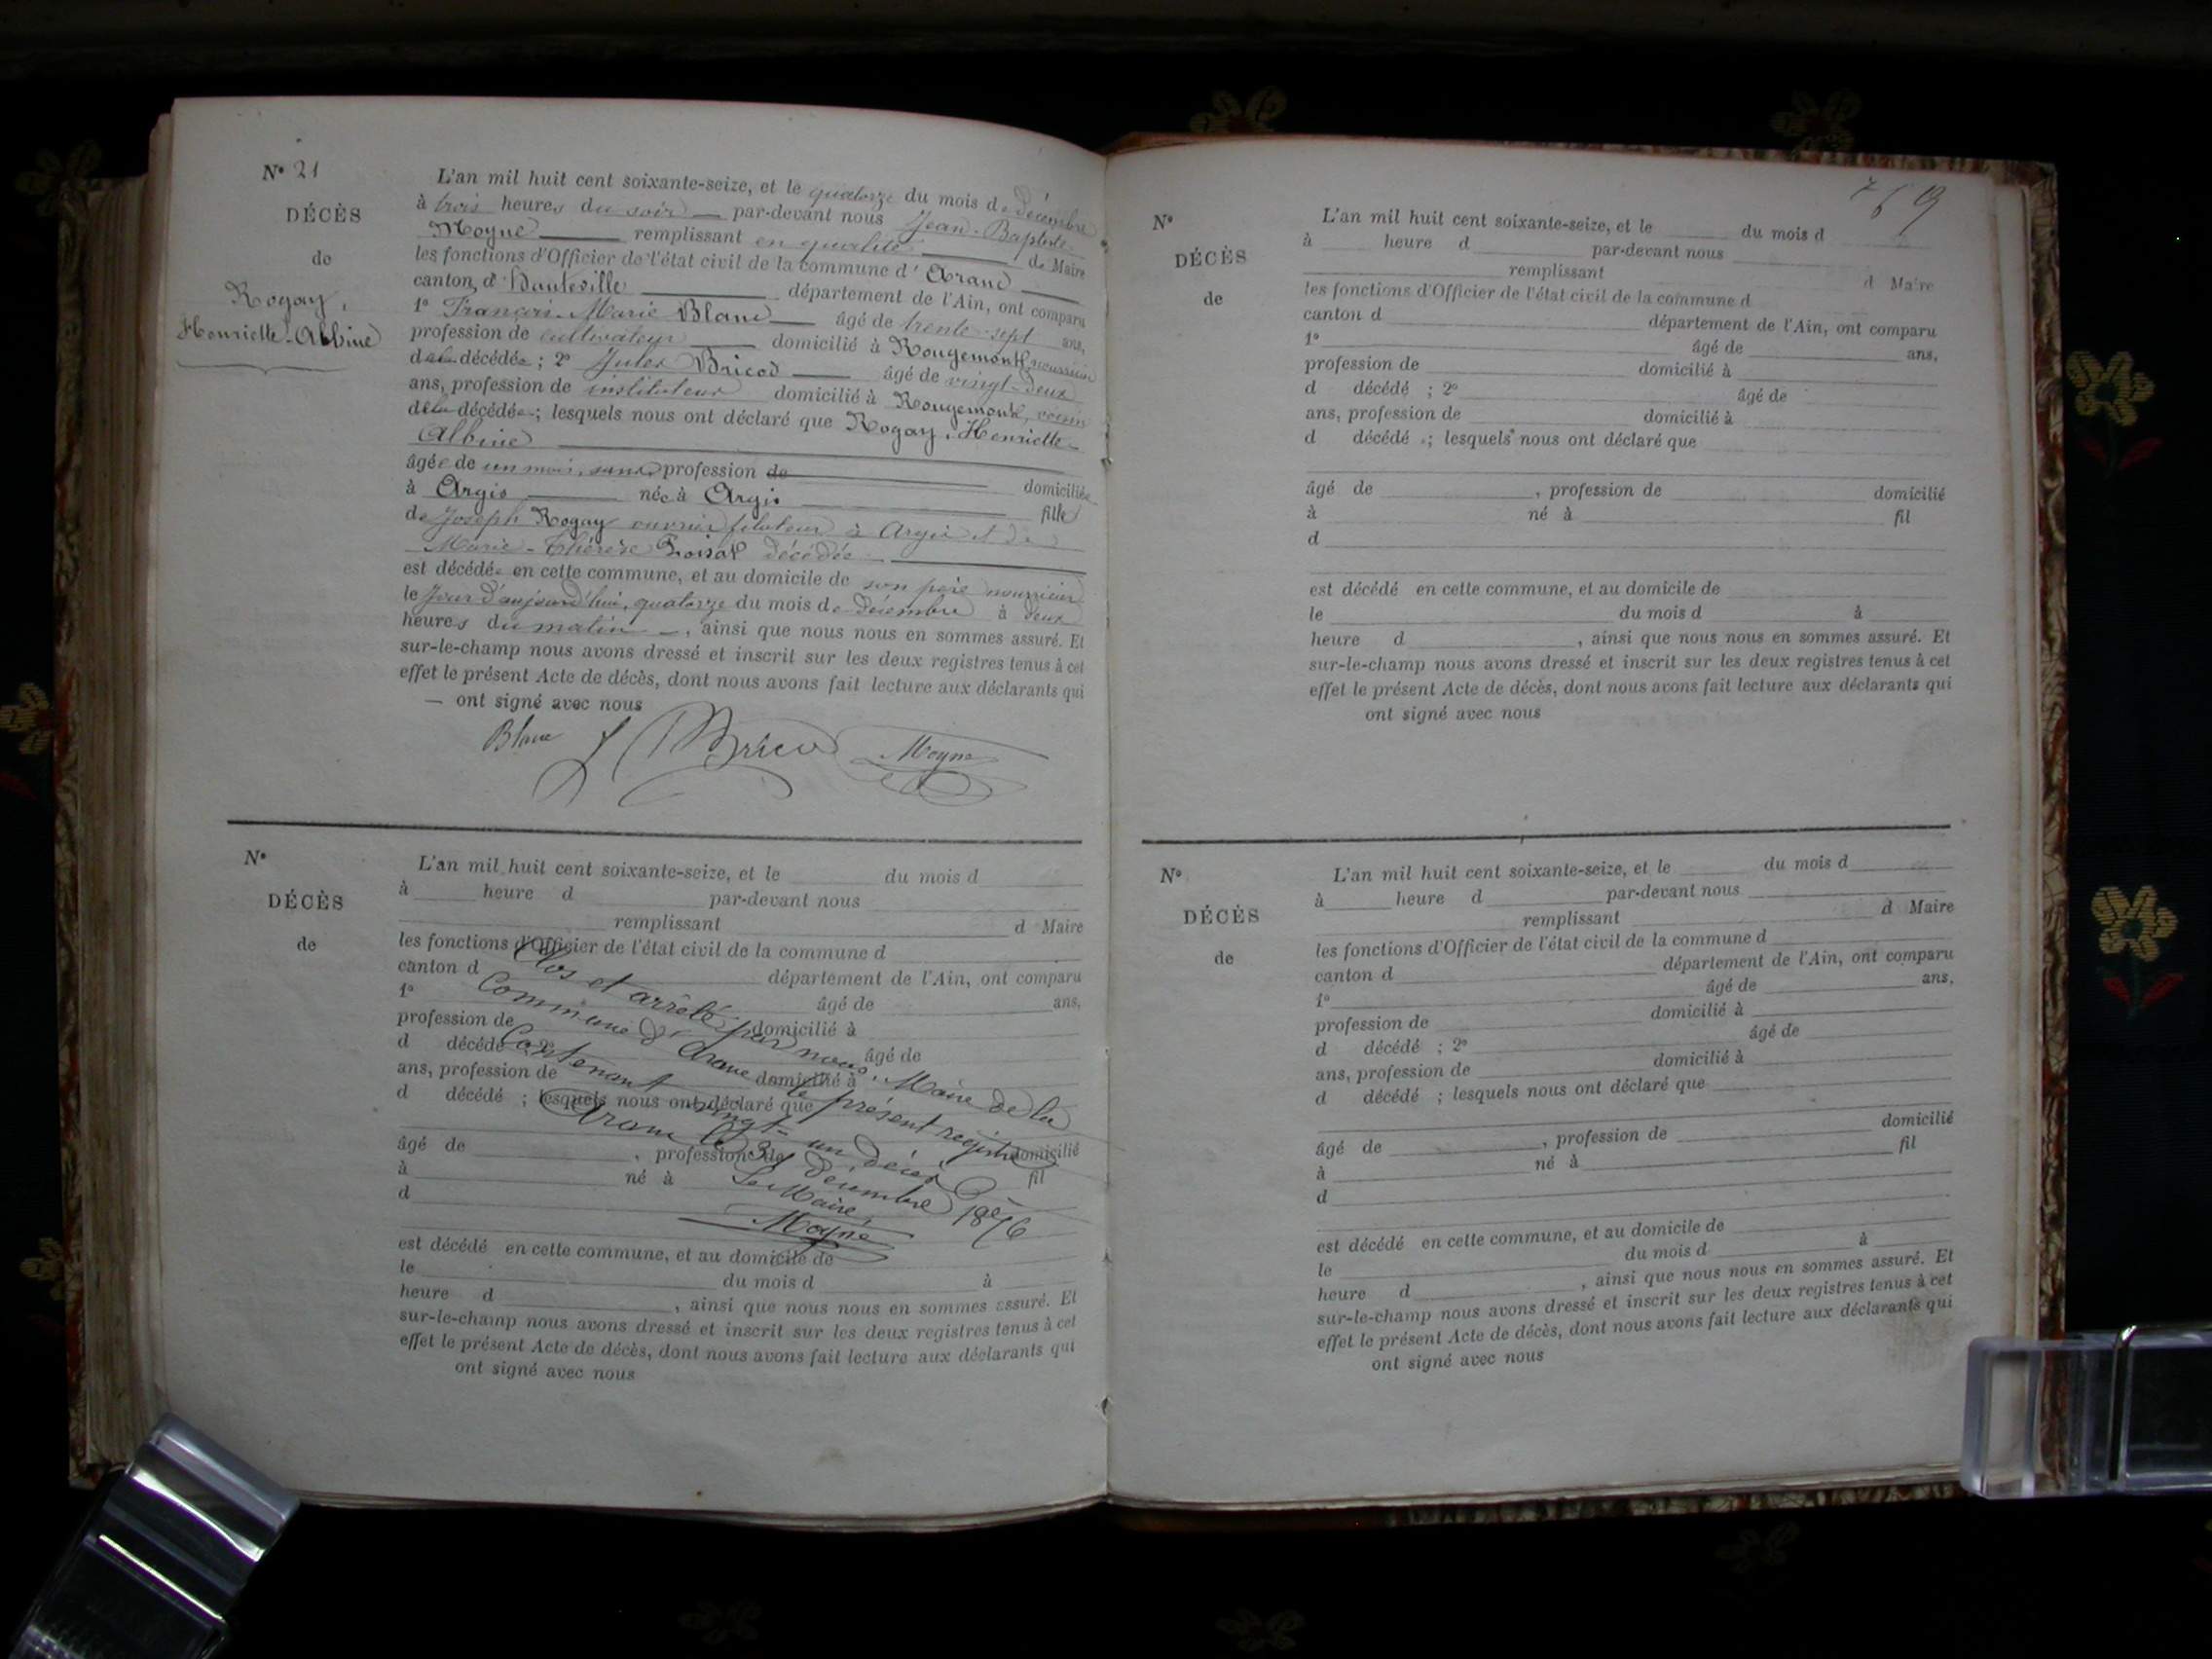 N° 21
DÉCÈS
de
Rogay,
Henriette-Albine
L'an mil huit cent soixante-seize, et le quatorze du mois de décembre
à trois heures du soir — par-devant nous Jean-Baptiste
Moyne — remplissant en qualité — de Maire
les fonctions d'Officier de l'état civil de la commune d' Aranc —
canton d'Hauteville — département de l'Ain, ont comparu
1° François-Marie Blanc — âgé de trente-sept ans,
profession de cultivateur — domicilié à Rougemont, nourricier
de la décédée ; 2° Jules Bricod — âgé de vingt-deux
ans, profession de instituteur domicilié à Rougemont, voisin
de la décédée ; lesquels nous ont déclaré que Rogay, Henriette-
Albine —
âgée de un mois, sans profession de — domiciliée
à Argis — née à Argis — fille
de Joseph Rogay ouvrier fileteur à Argis et de
Marie-Thérèse décédée —
est décédée en cette commune, et au domicile de son père nourricier
le jour d'aujourd'hui, quatorze du mois de décembre à deux
heures du matin —, ainsi que nous nous en sommes assuré. Et
sur-le-champ nous avons dressé et inscrit sur les deux registres tenus à cet
effet le présent Acte de décès, dont nous avons fait lecture aux déclarants qui
— ont signé avec nous
Blanc J Bricod Moyne
N°
DÉCÈS
de
L'an mil huit cent soixante-seize, et le du mois d
à heure d par-devant nous
remplissant d Maire
les fonctions d'Officier de l'état civil de la commune d
canton d département de l'Ain, ont comparu
1° âgé de ans,
profession de domicilié à
d décédé âgé de
ans, profession de domicilié à
d décédé ; lesquels nous ont déclaré que
âgé de , profession de domicilié
à né à fil
d
est décédé en cette commune, et au domicile de
le du mois d à
heure d , ainsi que nous nous en sommes assuré. Et
sur-le-champ nous avons dressé et inscrit sur les deux registres tenus à cet
effet le présent Acte de décès, dont nous avons fait lecture aux déclarants qui
ont signé avec nous
Clos et arrêté par nous, Maire de la
Commune d'Aranc le présent registre
Contenant vingt-un décès
Aranc le 31 décembre 1876
Le Maire,
Moyne
769
N°
DÉCÈS
de
L'an mil huit cent soixante-seize, et le du mois d
à heure d par-devant nous
remplissant d Maire
les fonctions d'Officier de l'état civil de la commune d
canton d département de l'Ain, ont comparu
1° âgé de ans,
profession de domicilié à
d décédé ; 2° âgé de
ans, profession de domicilié à
d décédé ; lesquels nous ont déclaré que
âgé de , profession de domicilié
à né à fil
d
est décédé en cette commune, et au domicile de
le du mois d à
heure d , ainsi que nous nous en sommes assuré. Et
sur-le-champ nous avons dressé et inscrit sur les deux registres tenus à cet
effet le présent Acte de décès, dont nous avons fait lecture aux déclarants qui
ont signé avec nous
N°
DÉCÈS
de
L'an mil huit cent soixante-seize, et le du mois d
à heure d par-devant nous
remplissant d Maire
les fonctions d'Officier de l'état civil de la commune d
canton d département de l'Ain, ont comparu
1° âgé de ans,
profession de domicilié à
d décédé ; 2° âgé de
ans, profession de domicilié à
d décédé ; lesquels nous ont déclaré que
âgé de , profession de domicilié
à né à fil
d
est décédé en cette commune, et au domicile de
le du mois d à
heure d , ainsi que nous nous en sommes assuré. Et
sur-le-champ nous avons dressé et inscrit sur les deux registres tenus à cet
effet le présent Acte de décès, dont nous avons fait lecture aux déclarants qui
ont signé avec nous